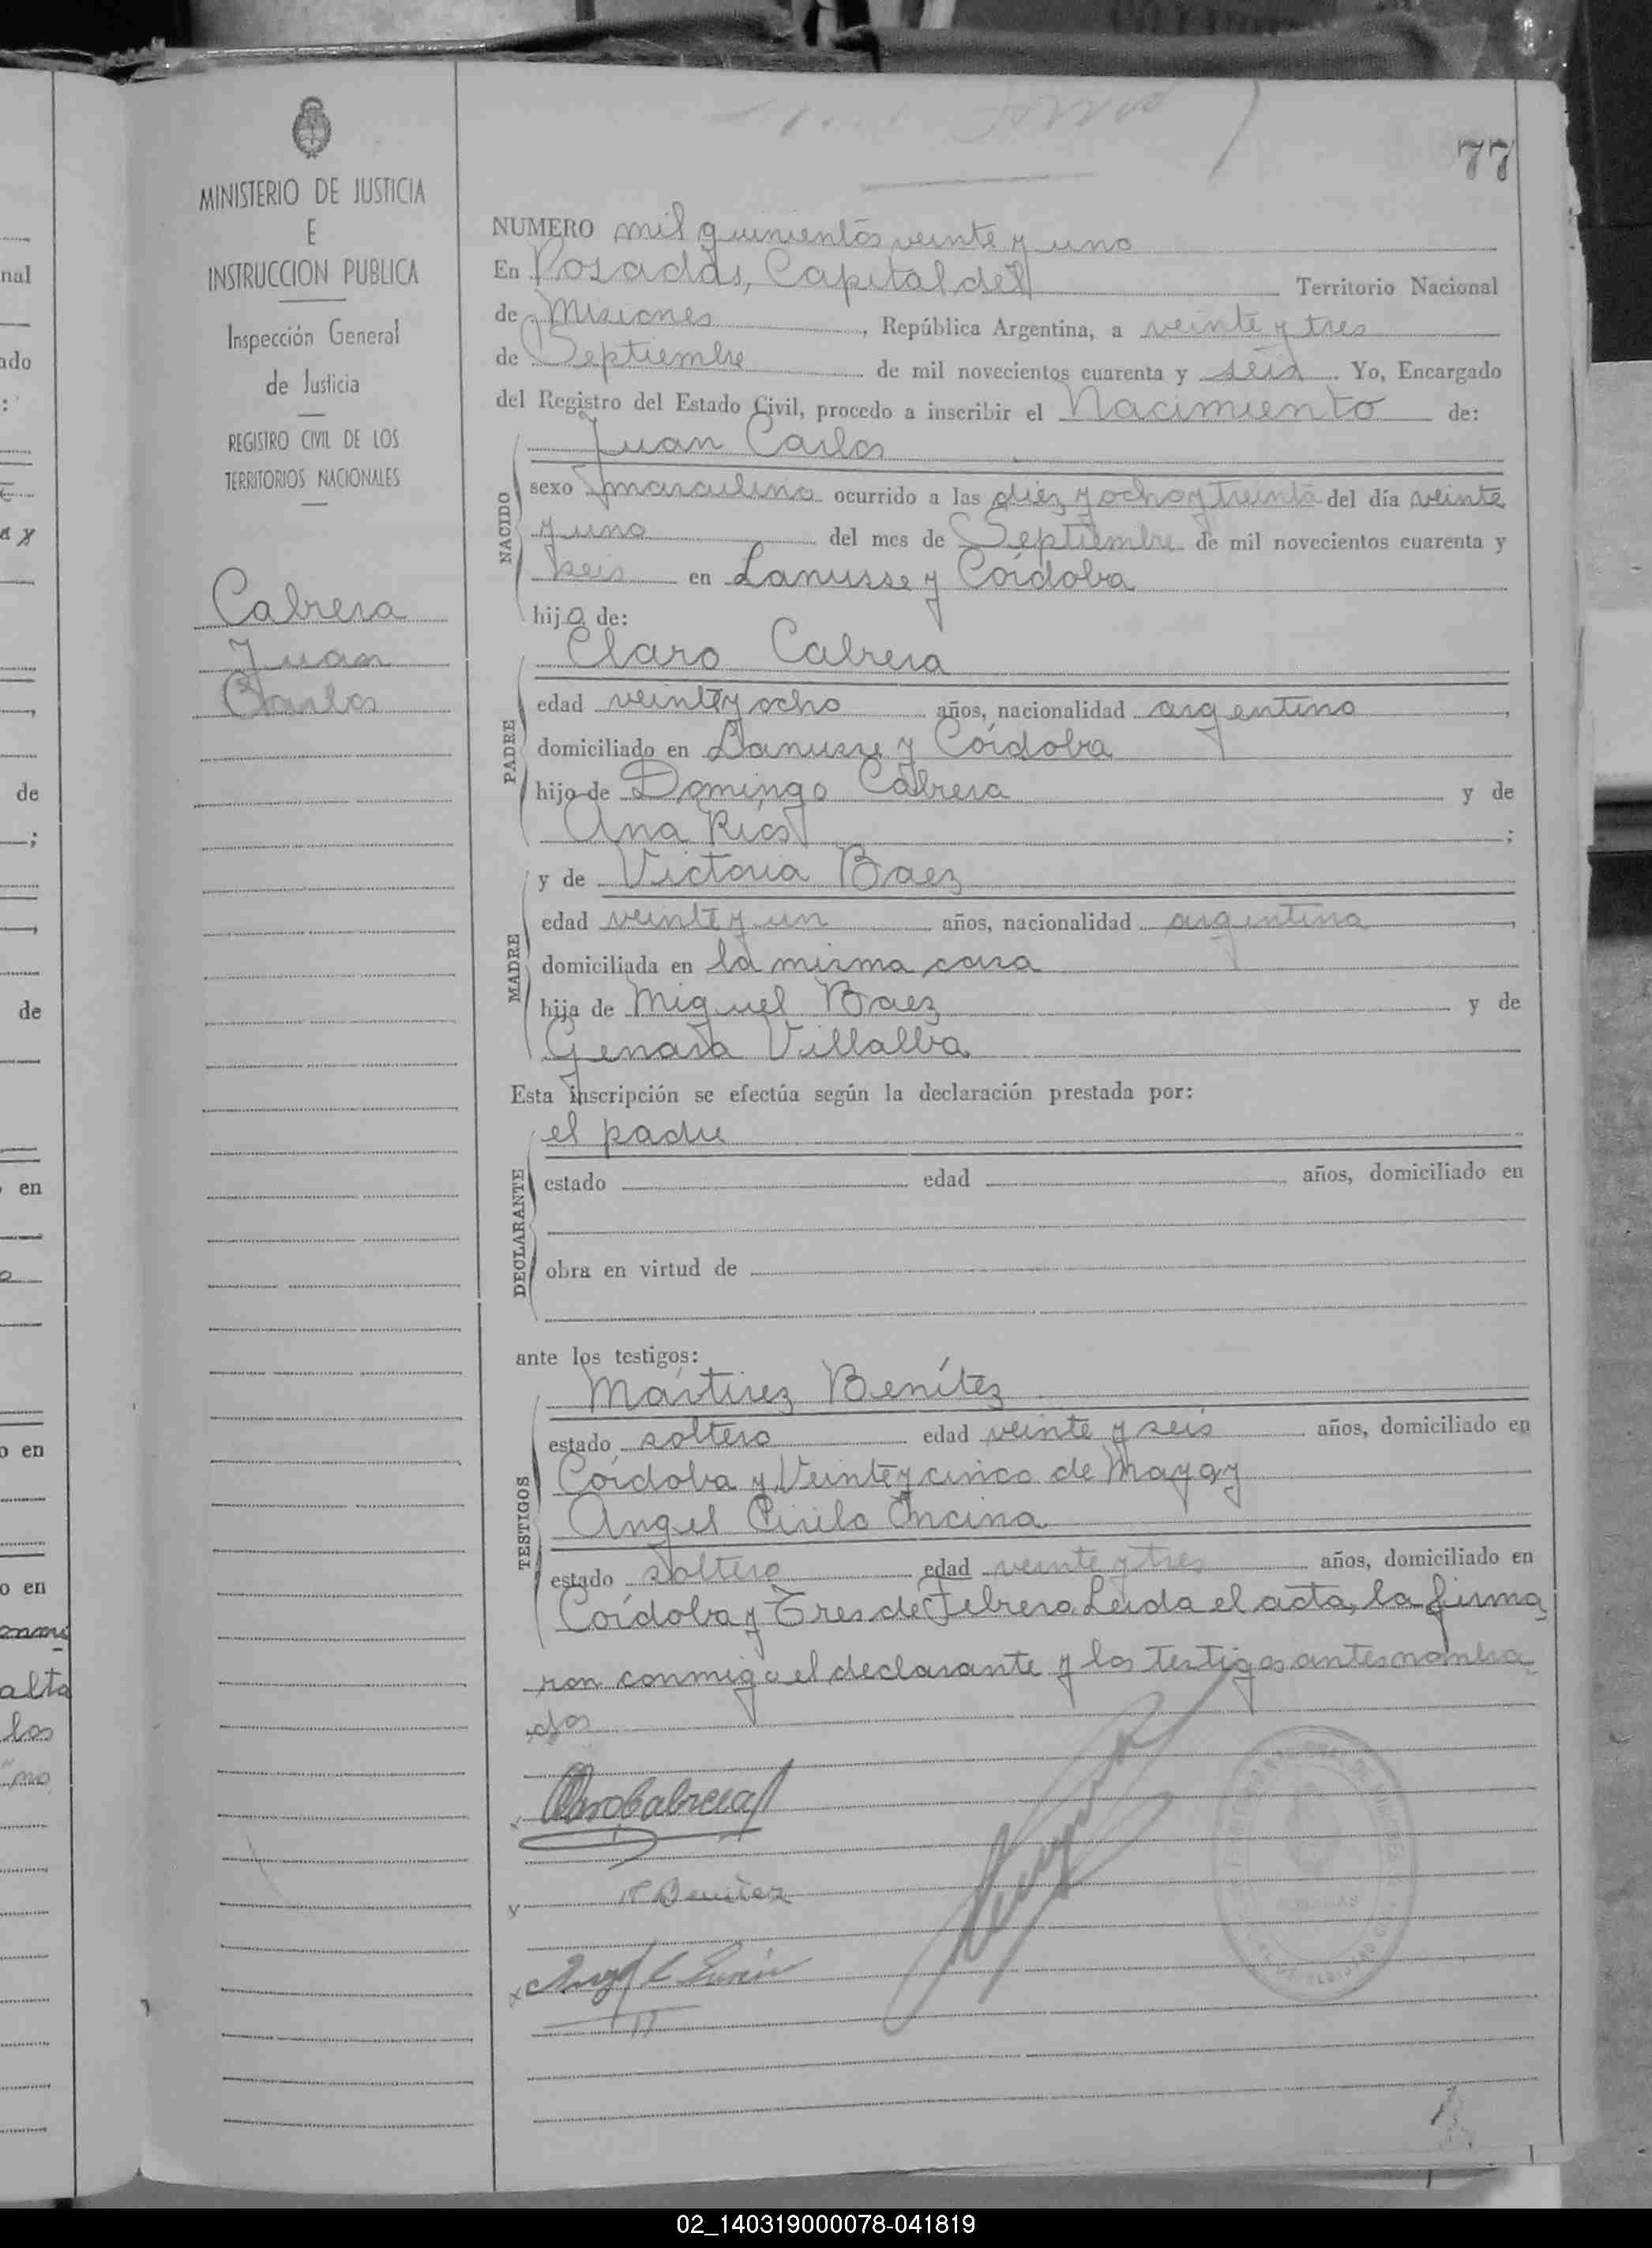 77
MINISTERIO DE JUSTICIA
E
INSTRUCCION PUBLICA
Inspección General
de Justicia
REGISTRO CIVIL DE LOS
TERRITORIOS NACIONALES
Cabrera
Juan
Carlos
NUMERO mil quinientos veinte y uno
En Posadas, Capital del Territorio Nacional
de Misiones, República Argentina, a veinte y tres
de Septiembre de mil novecientos cuarenta y seis. Yo, Encargado
del Registro del Estado Civil, procedo a inscribir el Nacimiento de:
NACIDO
Juan Carlos
sexo masculino ocurrido a las diez y ocho y treinta del día veinte
y uno del mes de Septiembre de mil novecientos cuarenta y
seis en Lanusse y Córdoba
hijo de:
PADRE
Claro Cabrera
edad veinte y ocho años, nacionalidad argentino,
domiciliado en Lanusse y Córdoba
hijo de Domingo Cabrera y de
Ana Rios;
MADRE
y de Victoria Baez
edad veinte y un años, nacionalidad argentina,
domiciliada en la misma casa
hija de Miguel Baez y de
Genara Villalba
Esta inscripción se efectúa según la declaración prestada por:
DECLARANTE
el padre
estado edad años, domiciliado en
obra en virtud de
ante los testigos:
TESTIGOS
Mártirez Benítez
estado soltero edad veinte y seis años, domiciliado en
Córdoba y Veinte y cinco de Mayo y
Angel Cirilo Encina
estado soltero edad veinte y tres años, domiciliado en
Córdoba y Tres de Febrero. Leida el acta, la firma
ron conmigo el declarante y los testigos antes nombra
dos
Claro Cabrera
M Benítez
Angel C Encina
02_140319000078-041819